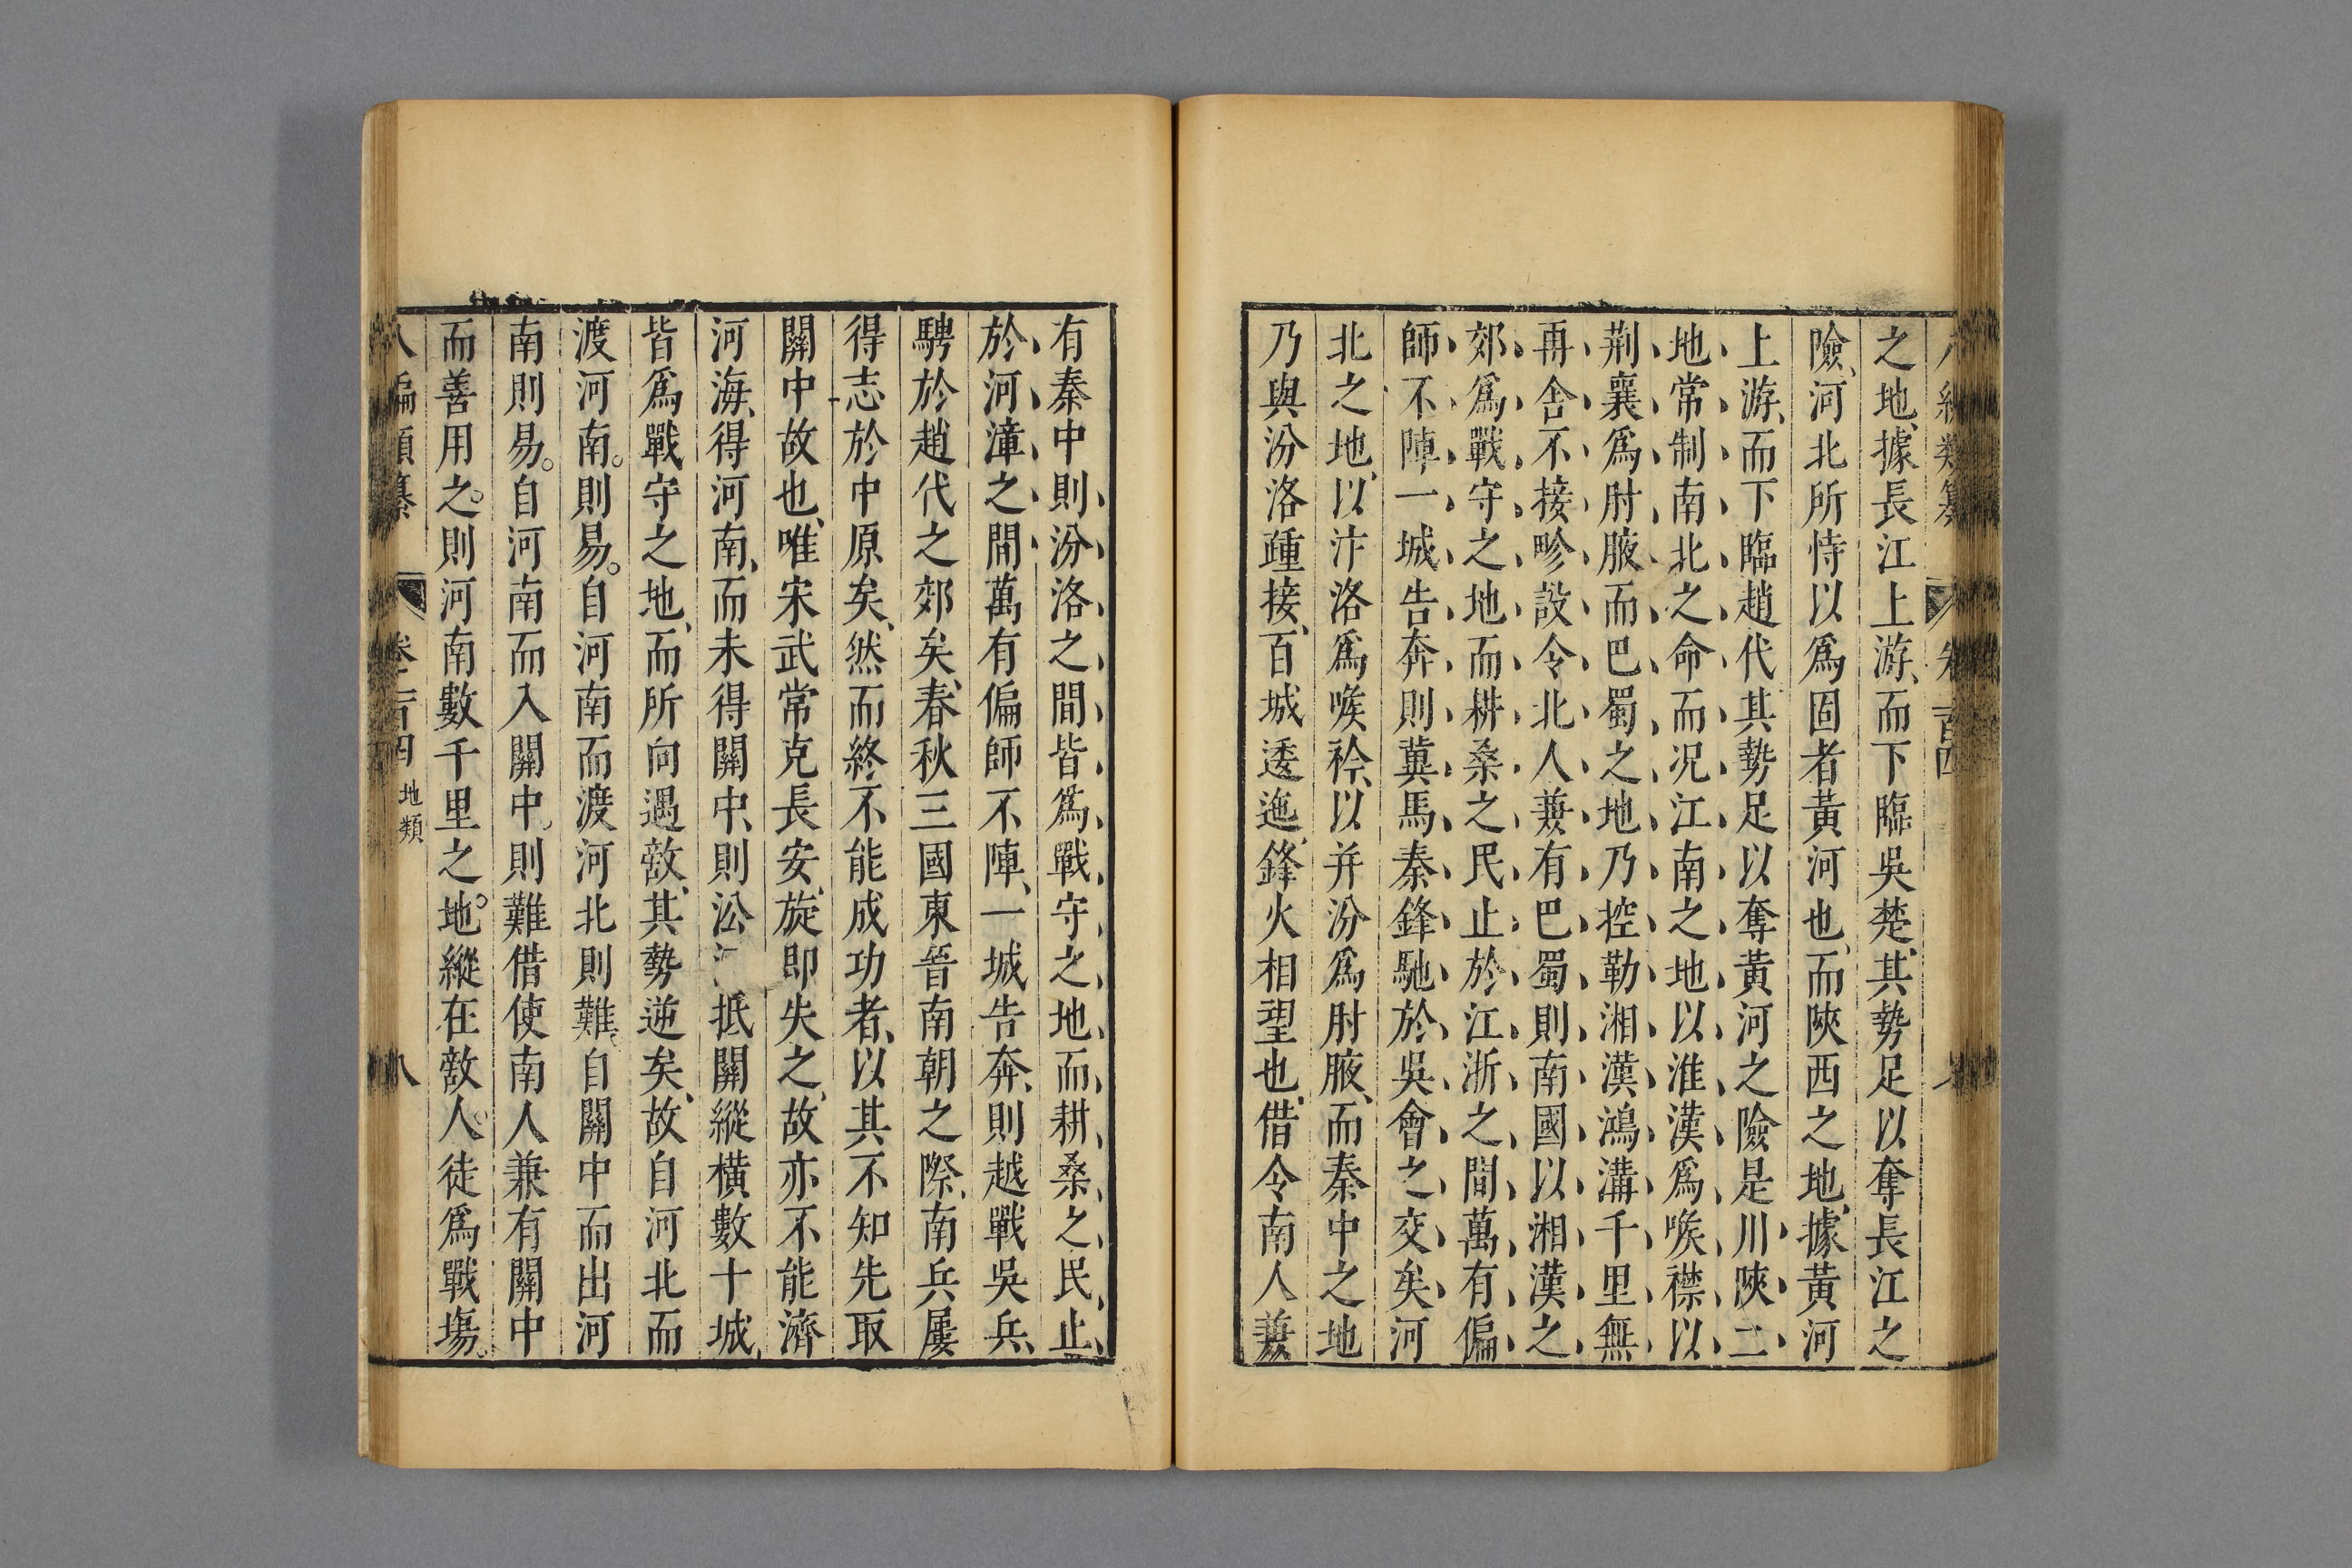 之地、據長江上游、而下臨吳楚、其勢足以奪長江之
險、河北所恃以爲固者黃河也、而陝西之地、據黃河
上游、而下臨趙代其勢足以奪黃河之險是川陝二
地常制南北之命而况江南之地以淮漢爲喉襟以
荆襄爲肘腋而巴蜀之地乃控勒湘漢鴻溝千里無
再舍不接畛設令北人蒹有巴蜀則南國以湘漢之
郊爲戰守之地而耕桑之民止於江浙之間萬有偏
師不陣一城告奔則冀馬秦鋒馳於吳會之交矣河
北之地、以汴洛爲喉衿、以并汾爲肘腋、而秦中之地
乃與汾洛踵接、百城逶迤、鋒火相望也、借令南人蒹
有秦中則汾洛之間皆爲戰守之地而耕桑之民止
於河漳之間萬有偏師不陣、一城告奔、則越戰吳兵、
騁於趙代之郊矣、春秋三國東晉南朝之際、南兵屢
得志於中原矣、然而終不能成功者、以其不知先取
關中故也、唯宋武常克長安、旋即失之、故亦不能濟
河海、得河南、而未得關中、則㳂抵關縱橫數十城、
皆爲戰守之地、而所向遇敵、其勢逆矣、故自河北而
渡河南。則易。自河南而渡河北則難。自關中而出河
南則易。自河南而入關中。則難借使南人兼有關中
而善用之。則河南數千里之地。縱在敵人。徒爲戰塲。
八編類纂 卷一百四 地類 八